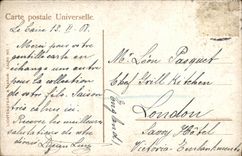 Carte postale Universelle.
Le Caire 13. II. 07.
Merci pour votre
gentille carte en
échange une autre
pour la collection
de votre fils. Saison
très calme ici.
Recevez les meilleures
salutations de votre
Lucien
Mr. Léon Pasquet
Chef Grill Kitchen
London
(England)
Savoy Hôtel
Victoria Embankment